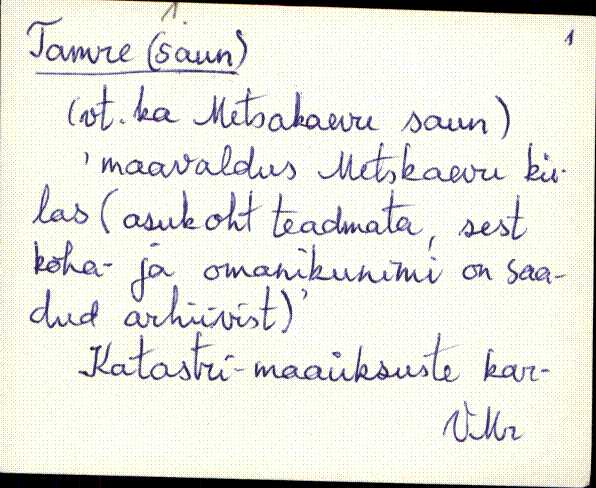 1.
1
Tamre (saun)
(vt. ka Metsakaevu saun)
'maavaldus Metskaevu kü-
las (asukoht teadmata, sest
koha- ja omanikunimi on saa-
dud arhiivist)'
Katastri-maaüksuste kar-
VMr